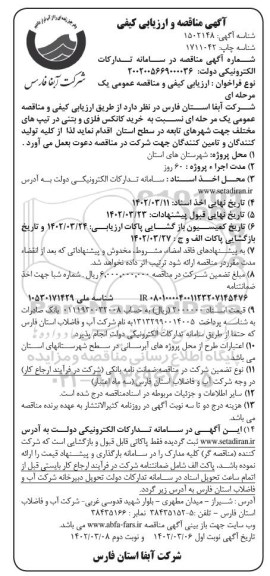 آگهی مناقصه و ارزیابی کیفی
شناسه آگهی: ۱۵۰۲۱۴۸
شناسه چاپ: ۱۷۱۱۰۴۲
شرکت آبفا فارس
شماره آگهی مناقصه در سامانه تدارکات
الکترونیکی دولت: ۲۰۰۲۰۰۵۶۶۹۰۰۰۰۳۶
نوع فراخوان : ارزیابی کیفی و مناقصه عمومی یک
مرحله ای
شرکت آبفا استان فارس در نظر دارد از طریق ارزیابی کیفی و مناقصه
عمومی یک مر حله ای نسبت به خرید کانکس فلزی و بتنی در تیپ های
مختلف جهت شهرهای تابعه در سطح استان اقدام نماید لذا از کلیه تولید
کنندگان و تامین کنندگان جهت شرکت در مناقصه دعوت بعمل می آورد .
۱) محل پروژه: شهرستان های استان
۲) مدت اجراء پروژه : ۶۰ روز
۳) محل اخذ اسناد : سامانه تدارکات الکترونیکی دولت به آدرس
www.setadiran.ir
۴) تاریخ نهایی اخذ اسناد: ۱۴۰۲/۰۳/۱۱
۵) تاریخ نهایی قبول پیشنهادات: ۱۴۰۲/۰۳/۲۳
۶) تاریخ کمیسیون باز گشایی پاکات ارزیابی: ۱۴۰۲/۰۳/۲۴ و تاریخ
بازگشایی پاکات الف و ج : ۱۴۰۲/۰۳/۲۷
۷) به پیشنهادهای فاقد امضاء، مشروط، مخدوش و پیشنهاداتی که بعد از انقضاء
مدت مقرر در مناقصه ارائه شود ترتیب اثر داده نخواهد شد.
۸) مبلغ تضمین شرکت در مناقصه ۶,۰۰۰,۰۰۰,۰۰۰ ریال، شماره شبا جهت اخذ
ضمانتنامه
شناسه ملی ۱۰۵۳۰۱۷۱۴۲۹
به شناسه پرداخت به نام شرکت آب و فاضلاب استان فارس
که حتما از طریق سامانه تدارکات الکترونیک دولت انجام پذیرد.
۱۰) اعتبارات طرح از محل پروژه های آبرسانی در سطح شهرستانهای استان
می باشد
۱۱) نوع تضمین شرکت در مناقصه:ضمانت نامه بانکی (شرکت در فرآیند ارجاع کار)
در وجه شرکت آب و فاضلاب استان فارس(سه ماه اعتبار)
۱۲) سایر اطلاعات و جزئیات مربوطه در اسنادمناقصه درج شده است.
۱۳) هزینه درج دو تا سه نوبت آگهی در روزنامه کثیرالانتشار به عهده برنده مناقصه
می باشد.
۱۴) این آگهی در سامانه تدارکات الکترونیکی دولت به آدرس
www.setadiran.ir ثبت گردیده فقط پاکاتی قابل قبول و بازگشایی است که شرکت
کننده (مناقصه گر) کلیه مدارک را در سامانه بارگذاری و پیشنهاد قیمت را ارائه
نموده باشد، پاکت الف شامل ضمانتنامه شرکت در فرآیند ارجاع کار بایستی قبل از
اتمام ساعت تحویل اسناد در سامانه تدارکات دولت تحویل دبیرخانه شرکت آب و
فاضلاب استان فارس به آدرس زیر گردد.
آدرس : شیراز – میدان مطهری – بلوار شهید قدوسی غربی– شرکت آب و فاضلاب
استان فارس – تلفن :۵-۳۸۴۳۵۱۵۲ نمابر : ۳۸۴۳۵۱۶۶
وب سایت جهت باز بینی آگهی مناقصه www.abfa-fars.ir می باشد.
تاریخ آگهی نوبت اول ۱۴۰۲/۰۳/۰۶ و نوبت دوم ۱۴۰۲/۰۳/۰۸
شرکت آبفا استان فارس